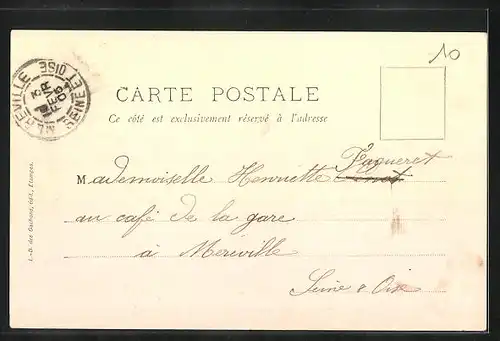 10
MAREVILLE
SEINE ET OISE
3
FEVR
05
CARTE POSTALE
Ce côté est exclusivement réservé à l'adresse
Paqueret
Mademoiselle Henriette
au café de la gare
à Mereville
Seine & Oise
L.-D. des Gachons, édit., Etampes.